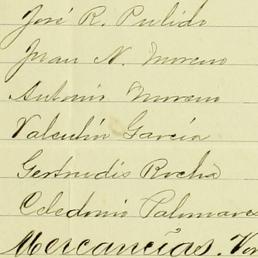 José R. Pulido
Juan N. Moreno
Antonio Moreno
Valentín García
Gertrudis Rocha
Celedonio Palomares
Mercancías.